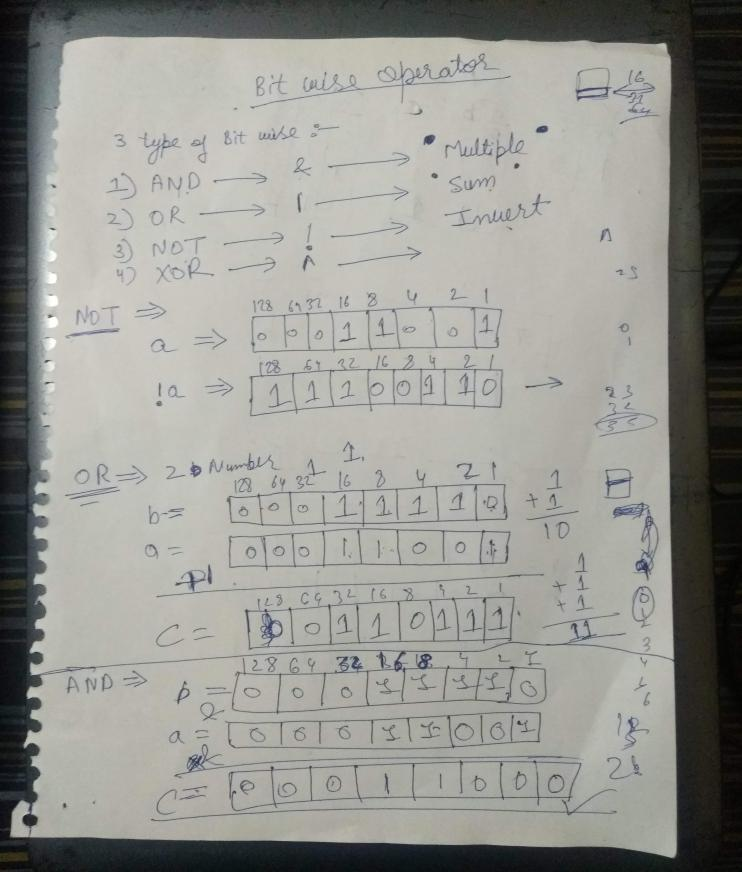 Bit wise operator
16
32
64
3 type of Bit wise :-
1) AND → & → • Multiple •
2) OR → | → • Sum •
3) NOT → ! → Invert
4) XOR → ^ →
^
25
0
1
NOT ⇒
128 64 32 16 8 4 2 1
a ⇒ 0 0 0 1 1 0 0 1
128 64 32 16 8 4 2 1
!a ⇒ 1 1 1 0 0 1 1 0 →
23
32
OR ⇒ 2 Number 1 1
128 64 32 16 8 4 2 1
b = 0 0 0 1 1 1 1 0
a = 0 0 0 1 1 0 0 1
1
+ 1
10
1
+ 1
+ 1
11
128 64 32 16 8 4 2 1
C = 0 0 1 1 0 1 1 1
3
4
6
AND ⇒
128 64 32 16 8 4 2 1
b = 0 0 0 1 1 1 1 0
&
a = 0 0 0 1 1 0 0 1
C = 0 0 0 1 1 0 0 0